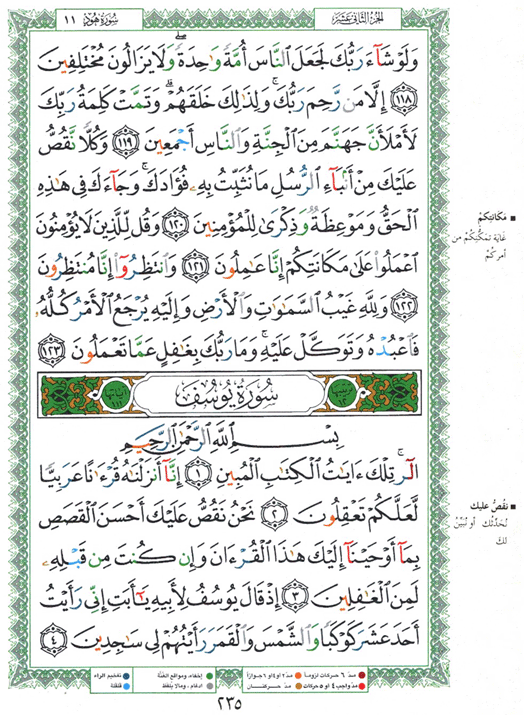 الجزء الثاني عشر
سورة هود ١١
وَلَوْ شَآءَ رَبُّكَ لَجَعَلَ ٱلنَّاسَ أُمَّةً وَٰحِدَةً ۖ وَلَا يَزَالُونَ مُخْتَلِفِينَ
﴿١١٨﴾ إِلَّا مَن رَّحِمَ رَبُّكَ ۚ وَلِذَٰلِكَ خَلَقَهُمْ ۗ وَتَمَّتْ كَلِمَةُ رَبِّكَ
لَأَمْلَأَنَّ جَهَنَّمَ مِنَ ٱلْجِنَّةِ وَٱلنَّاسِ أَجْمَعِينَ ﴿١١٩﴾ وَكُلًّا نَّقُصُّ
عَلَيْكَ مِنْ أَنۢبَآءِ ٱلرُّسُلِ مَا نُثَبِّتُ بِهِۦ فُؤَادَكَ ۚ وَجَآءَكَ فِى هَٰذِهِ
ٱلْحَقُّ وَمَوْعِظَةٌ وَذِكْرَىٰ لِلْمُؤْمِنِينَ ﴿١٢٠﴾ وَقُل لِّلَّذِينَ لَا يُؤْمِنُونَ
ٱعْمَلُوا۟ عَلَىٰ مَكَانَتِكُمْ إِنَّا عَٰمِلُونَ ﴿١٢١﴾ وَٱنتَظِرُوٓا۟ إِنَّا مُنتَظِرُونَ
﴿١٢٢﴾ وَلِلَّهِ غَيْبُ ٱلسَّمَٰوَٰتِ وَٱلْأَرْضِ وَإِلَيْهِ يُرْجَعُ ٱلْأَمْرُ كُلُّهُۥ
فَٱعْبُدْهُ وَتَوَكَّلْ عَلَيْهِ ۚ وَمَا رَبُّكَ بِغَٰفِلٍ عَمَّا تَعْمَلُونَ ﴿١٢٣﴾
سُورَةُ يُوسُفَ
بِسْمِ ٱللَّهِ ٱلرَّحْمَٰنِ ٱلرَّحِيمِ
الٓر ۚ تِلْكَ ءَايَٰتُ ٱلْكِتَٰبِ ٱلْمُبِينِ ﴿١﴾ إِنَّآ أَنزَلْنَٰهُ قُرْءَٰنًا عَرَبِيًّا
لَّعَلَّكُمْ تَعْقِلُونَ ﴿٢﴾ نَحْنُ نَقُصُّ عَلَيْكَ أَحْسَنَ ٱلْقَصَصِ
بِمَآ أَوْحَيْنَآ إِلَيْكَ هَٰذَا ٱلْقُرْءَانَ وَإِن كُنتَ مِن قَبْلِهِۦ
لَمِنَ ٱلْغَٰفِلِينَ ﴿٣﴾ إِذْ قَالَ يُوسُفُ لِأَبِيهِ يَٰٓأَبَتِ إِنِّى رَأَيْتُ
أَحَدَ عَشَرَ كَوْكَبًا وَٱلشَّمْسَ وَٱلْقَمَرَ رَأَيْتُهُمْ لِى سَٰجِدِينَ ﴿٤﴾
مَكَانَتِكُمْ
غَايَةِ تَمَكُّنِكُمْ من
أمركُمْ
نَقُصُّ عليك
نُحَدِّثُك أو نُبَيِّنُ
لك
مدّ ٦ حركات لزوماً
مدّ ٢ أو ٤ أو ٦ جوازاً
إخفاء، ومواقع الغُنَّة
تفخيم الراء
مدّ واجب ٤ أو ٥ حركات
مدّ حركتان
ادغام، وما لا يُلفَظ
قلقلة
٢٣٥